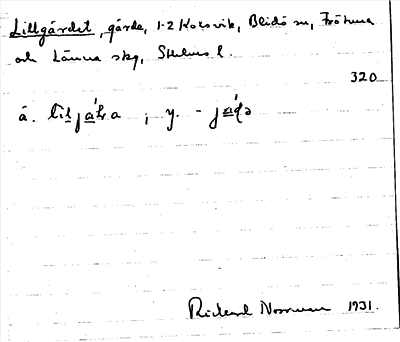 Lillgärdet, gärde, 1-2 Kolsvik, Blidö sn, Frötuna
och Länna skg, Sthlms l.
320
á. lilja , y. -
Rickard Norrman 1931.